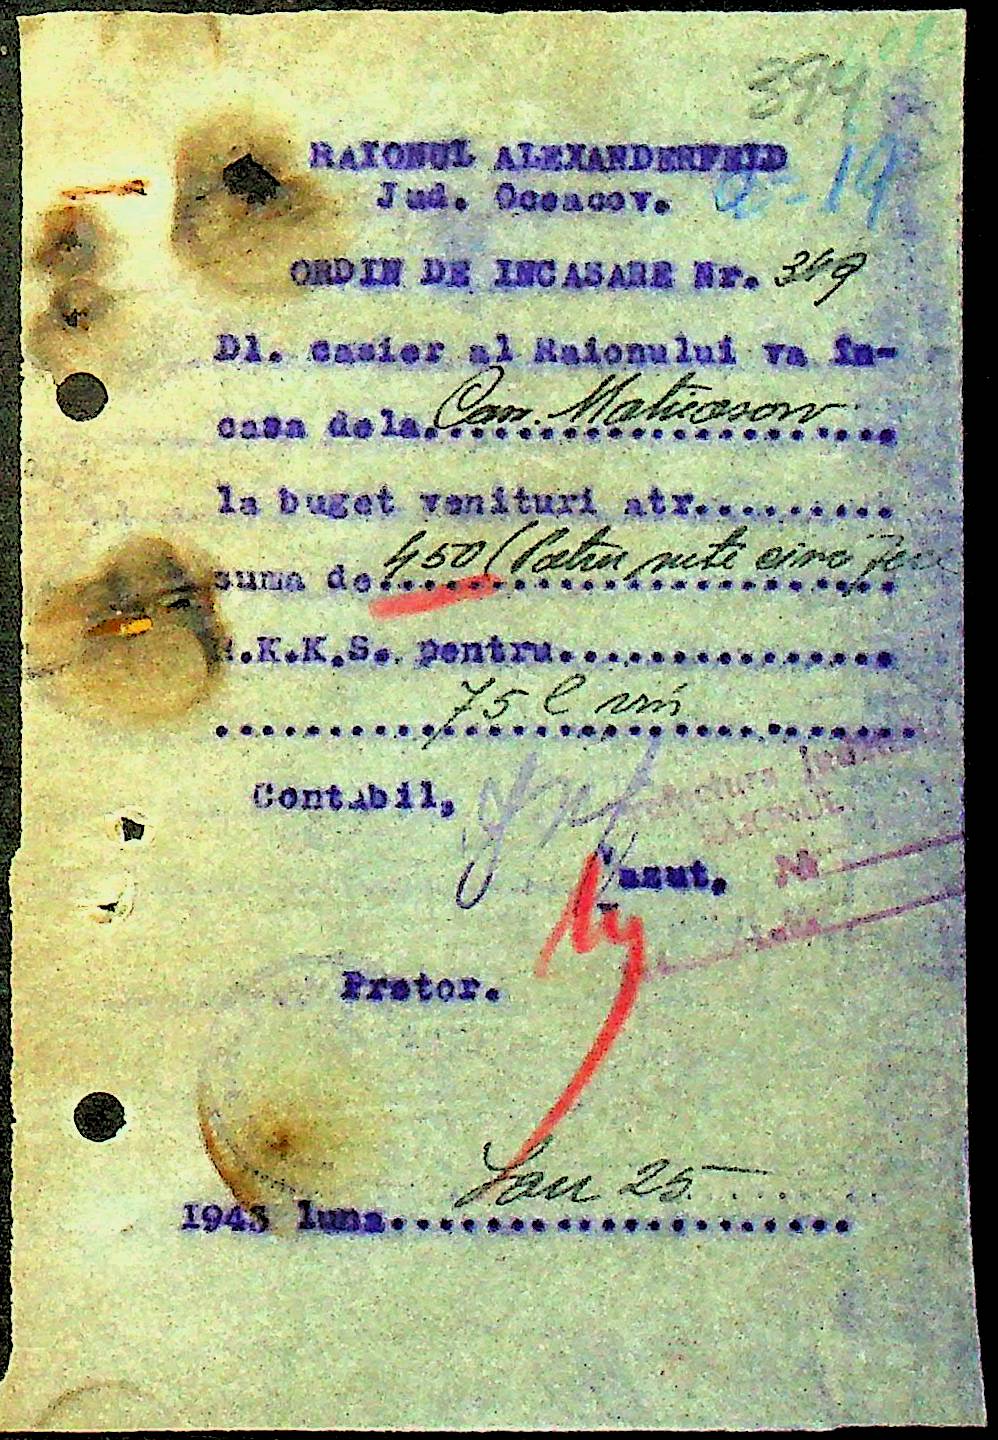 394
RAIONUL ALEXANDERFELD
Jud. Oceacov.
ORDIN DE INCASARE Nr. 349
Dl. casier al Raionului va în-
casa dela. Com. Matieasow
la buget venituri atr.........
suma de 450 (Patru sute cinci zeci
.K.K.S. pentru...............
75 l vin
Contabil,
Prefectura
RAIONUL
Vazut,
Nr
Pretor.
1943 luna Ian 25